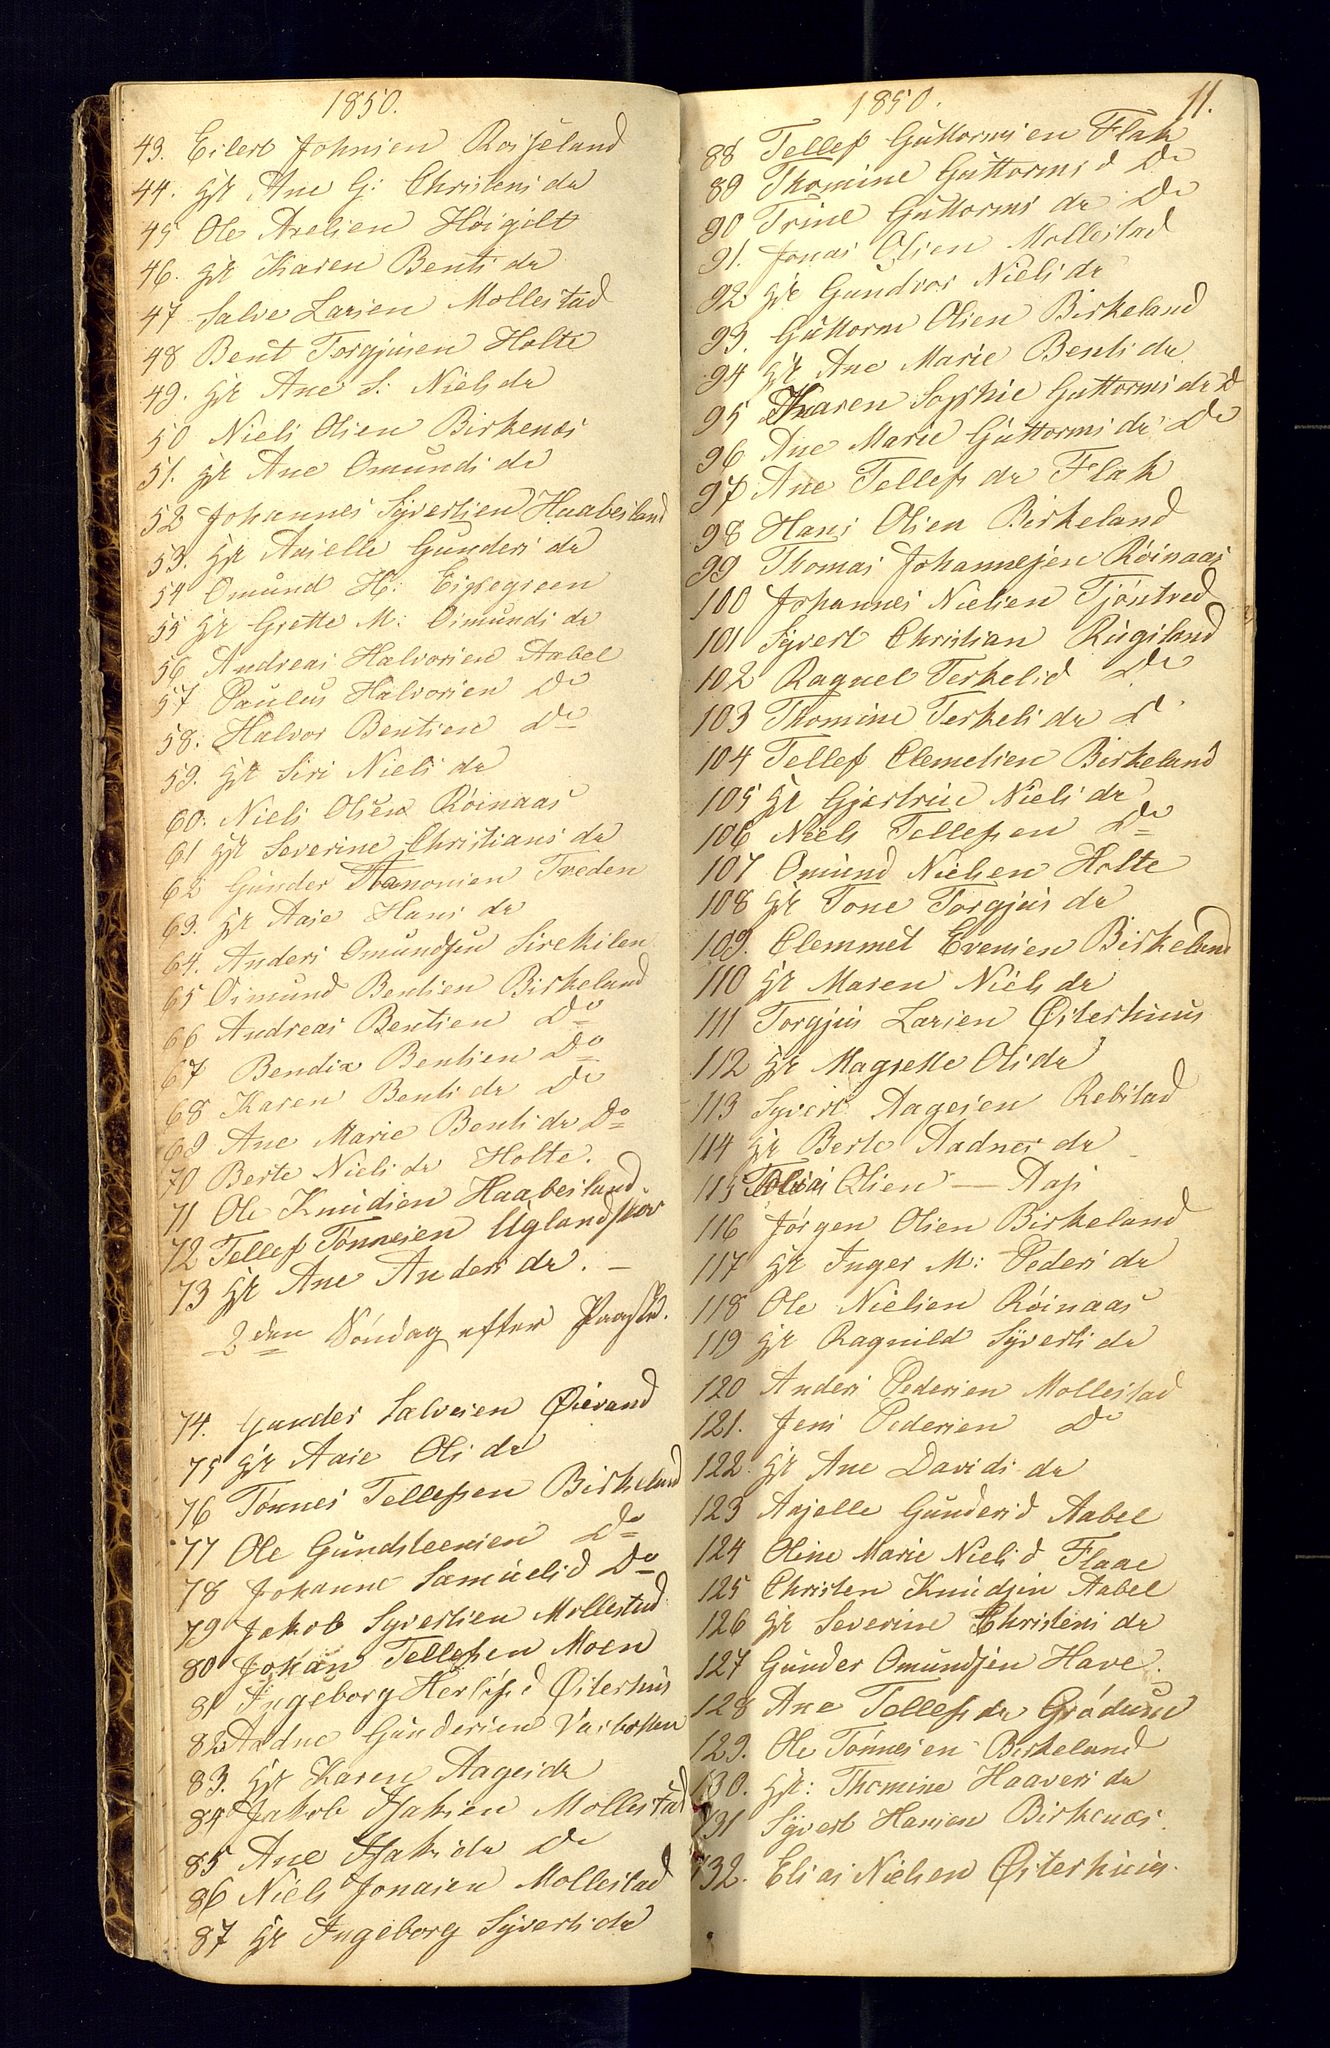 1850.
43. Eilert Johnsen Roiseland
44. Hst Ane G: Christensdr
45 Ole Axelsen Høigilt
46. Hst Karen Bentsdr
47 Salve Larsen Mollestad
48 Bent Torgjusen Holte
49. Hst Ane S: Nielsdr
50 Niels Olsen Birkenæs
51. Hst Ane Omundsdr
52 Johannes Syvertsen Haabesland
53. Hst Asielle Gundersdr
54 Omund H:
55 Hst Grette M: Osmundsdr
56 Andreas Halvorsen Aabel
57 Paulus Halvorsen Do
58. Halvor Bentsen Do
59. Hst Siri Nielsdr
60. Niels Olsen Røinaas
61 Hst Severine Christiansdr
62 Gunder Tveden
63. Hst Aase Hansdr
64. Anders Omundsen Sirekilen
65 Osmund Bentsen Birkeland
66 Andreas Bentsen Do
67 Bendix Bentsen Do
68 Karen Bentsdr Do
69 Ane Marie Bentsdr Do
70 Berte Nielsdr Holte.
71 Ole Knudsen Haabesland
72 Tellef Tønnesen Uglandskov
73 Hst Ane Andersdr. –
2den Søndag efter Paaske.
74. Gunder Salvesen Øievand
75 Hst Aase Olsdr
76 Tønnes Tellefsen Birkeland
77 Ole Gundsteensen Do
78 Johanne Samuelsd Do
79 Jakob Syvertsen Mollestad
80 Johan Tellefsen Moen
81 Ingeborg Herlofsd Østerhus
82 Aadne Gundersen
83. Hst Karen Aagesdr
84 Jakob Isaksen Mollestad
85 Ane Isaksdr Do
86 Niels Jonasen Mollestad
87 Hst Ingeborg Syvertsdr
1850. 11.
88 Tellef Guttormsen Flak
89 Thomine Guttormsd Do
90 Trine Guttormsdr Do
91. Jonas Olsen Mollestad
92 Hst Gundvor Nielsdr
93. Guttorm Olsen Birkeland
94 Hst Ane Marie Bentsdr
95 Karen Sophie Guttormsdr D
96 Ane Marie Guttormsdr Do
97 Ane Tellefsdr Flak
98 Hans Olsen Birkeland
99 Thomas Johannesen Røinaas
100 Johannes Nielsen Tjøntved
101 Syvert Christian Rugsland
102 Raguel Terkelsd Do
103 Thomine Terkelsdr D
104 Tellef Clemetsen Birkeland
105 Hst Gjertrine Nielsdr
106 Niels Tellefsen Do
107 Omund Nielsen Holte
108 Hst Tone Torgjusdr
109. Clemmet Evensen Birkeland
110 Hst Maren Nielsdr
111 Torgjus Larsen Østerhuus
112 Hst Magrette Olsdr
113 Syvert Aagesen Rebstad
114 Hst Berte Aadnesdr
115 Olsen – Aas
116 Jørgen Olsen Birkeland
117 Hst Inger M: Pedersdr
118 Ole Nielsen Røinaas
119 Hst Ragnild Syvertsdr
120 Anders Pedersen Mollestad
121. Jens Pedersen Do
122 Hst Ane Davidsdr
123 Asjelle Gundersd Aabel
124 Oline Marie Nielsd Flaae
125 Christen Knudsen Aabel
126 Hst Severine Christensdr
127 Gunder Omundsen Have.
128 Ane Tellefsdr Grødum
129. Ole Tønnesen Birkeland
130. Hst: Thomine Haaversdr
131 Syvert Hansen Birkenæs.
132. Elias Nielsen Østerhuus.